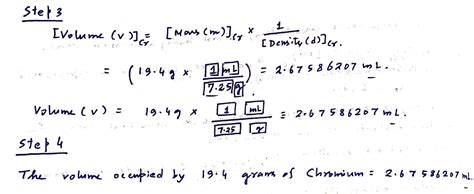 Step 3
[Volume (v)]Cr = [Mass (m)]Cr × 1/[Density (d)]Cr.
= (19.4 g × 1 mL/7.25 g) = 2.67586207 mL.
Volume (v) = 19.4 g × 1 mL/7.25 g = 2.67586207 mL.
Step 4
The volume occupied by 19.4 grams of Chromium = 2.67586207 mL